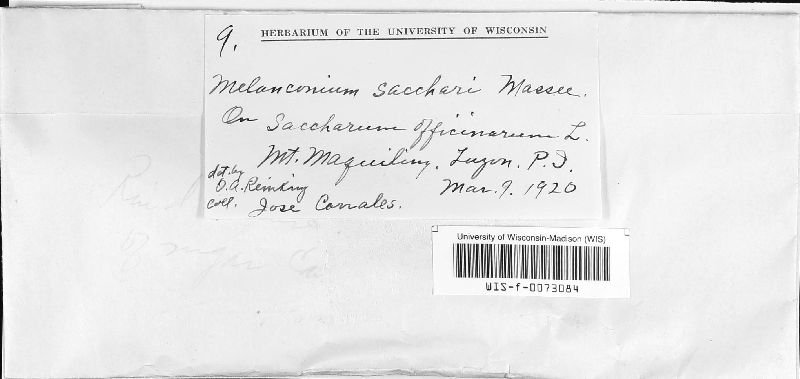 9.
HERBARIUM OF THE UNIVERSITY OF WISCONSIN
Melanconium sacchari Massee.
On Saccharum officinarum L.
Mt. Maquiling, Luzon, P.I.
det. by
O.A. Reinking
Mar. 9. 1920
coll. Jose Corrales.
University of Wisconsin-Madison (WIS)
WIS-f-0073084